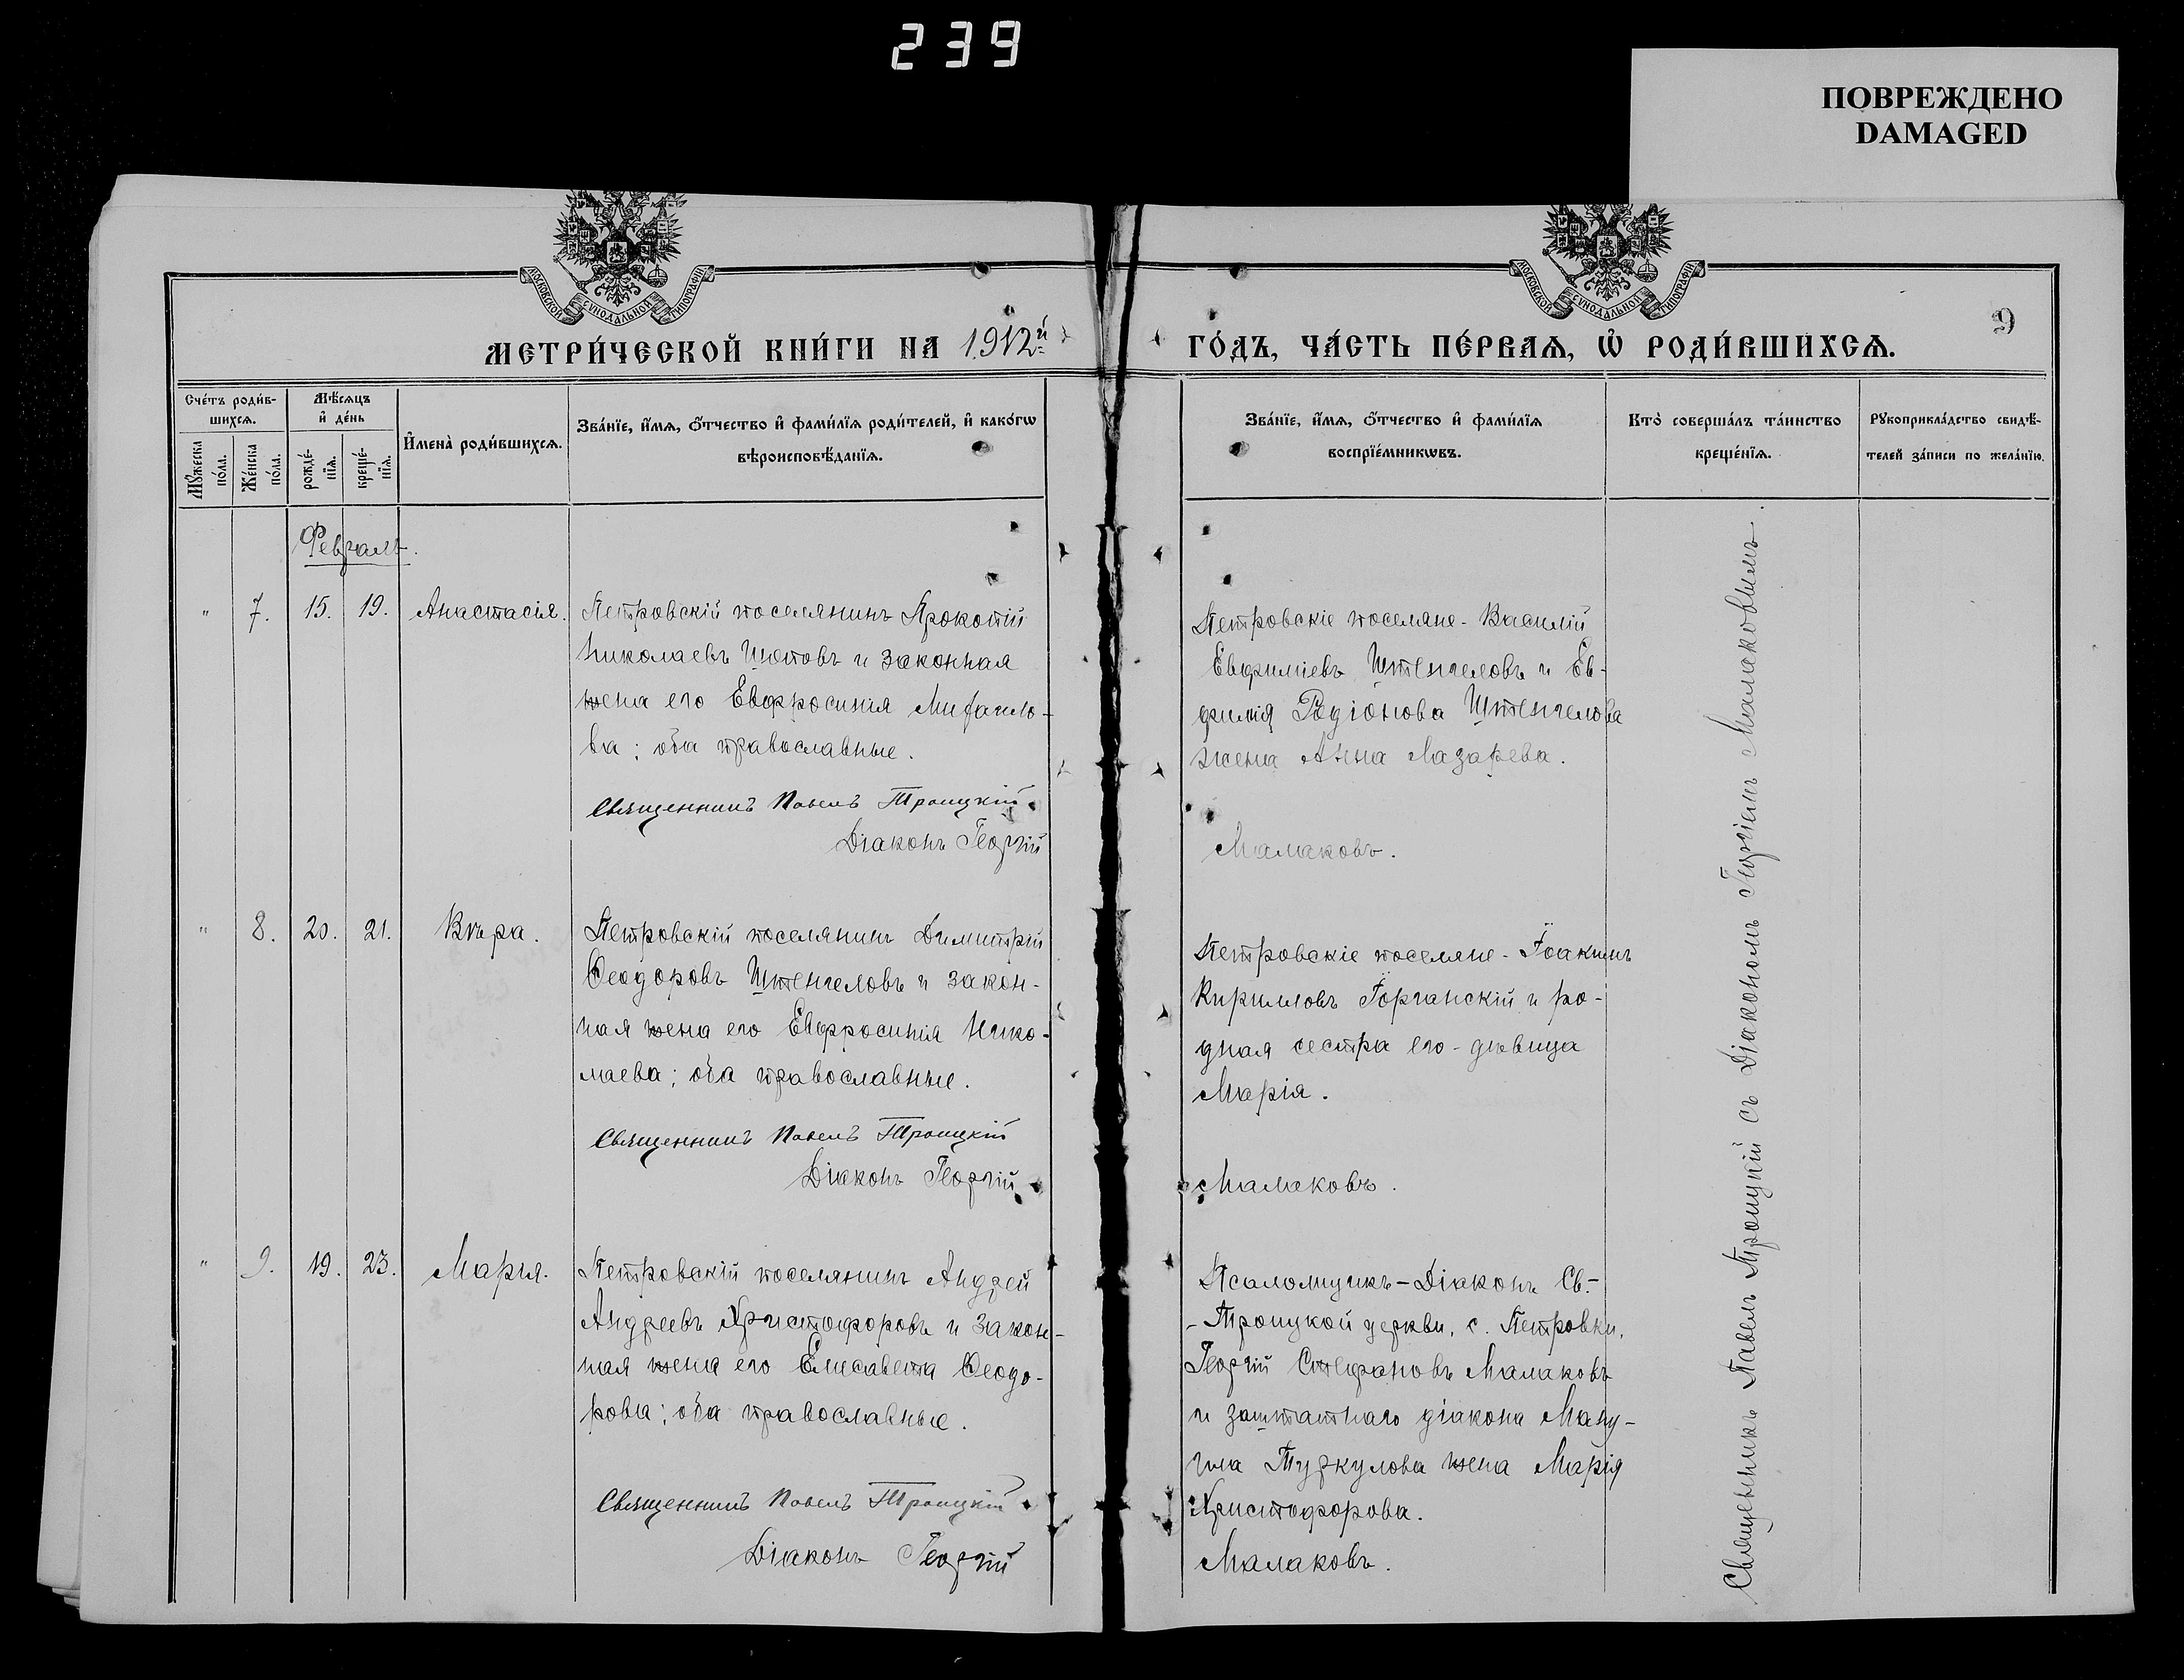 239
ПОВРЕЖДЕНО
DAMAGED
МОСКОВСКОЙ СѴНОДАЛЬНОЙ ТИПОГРАФІИ
МОСКОВСКОЙ СѴНОДАЛЬНОЙ ТИПОГРАФІИ
9
МЕТРИ́ЧЕСКОЙ КНИ́ГИ НА 1912й
ГО́ДЪ, ЧА́СТЬ ПЕ́РВАѦ, Ѡ РОДИ́ВШИХСѦ.
Сче́тъ роди́в-
шихсѧ.
Мꙋ́жеска по́ла.
Же́нска по́ла.
Мѣ́сѧцъ
и҆ де́нь
рожде́-
нїѧ.
креще́-
нїѧ.
И҆мена̀ роди́вшихсѧ.
Зва́нїе, и҆́мѧ, о҆́тчество и҆ фами́лїѧ роди́телей, и҆ како́гѡ
вѣроисповѣ́данїѧ.
Зва́нїе, и҆́мѧ, о҆́тчество и҆ фами́лїѧ
воспрїе́мникѡвъ.
Кто̀ соверша́лъ та́инство
креще́нїѧ.
Рꙋкоприкла́дство свидѣ́-
телей за́писи по жела́нїю.
Февраль.
" 7. 15. 19. Анастасія.
Петровскій поселянинъ Прокопій
Николаевъ Шоповъ и законная
жена его Евфросинія Михаило-
ва; оба православные.
Священникъ Павелъ Троицкій
Діаконъ Георгій
Петровскіе поселяне - Василій
Евфиміевъ Штенгеловъ и Ев-
фимія Родіонова Штенгелова
жена Анна Лазарева.
Малаковъ.
" 8. 20. 21. Вѣра.
Петровскій поселянинъ Димитрій
Ѳеодоровъ Штенгеловъ и закон-
ная жена его Евфросинія Нико-
лаева; оба православные.
Священникъ Павелъ Троицкій
Діаконъ Георгій
Петровскіе поселяне - Іоакимъ
Кирилловъ Горганскій и ро-
дная сестра его - дѣвица
Марія.
Малаковъ.
" 9. 19. 23. Марія.
Петровскій поселянинъ Андрей
Андреевъ Христофоровъ и закон-
ная жена его Елисавета Ѳеодо-
рова; оба православные.
Священникъ Павелъ Троицкій
Діаконъ Георгій
Псаломщикъ - Діаконъ Св.-
-Троицкой церкви, с. Петровки,
Георгій Стефановъ Малаковъ
и заштатнаго діакона Ману-
ила Туркулова жена Марія
Христофорова.
Малаковъ.
Священникъ Павелъ Троицкій съ Діакономъ Георгіемъ Малаковымъ.